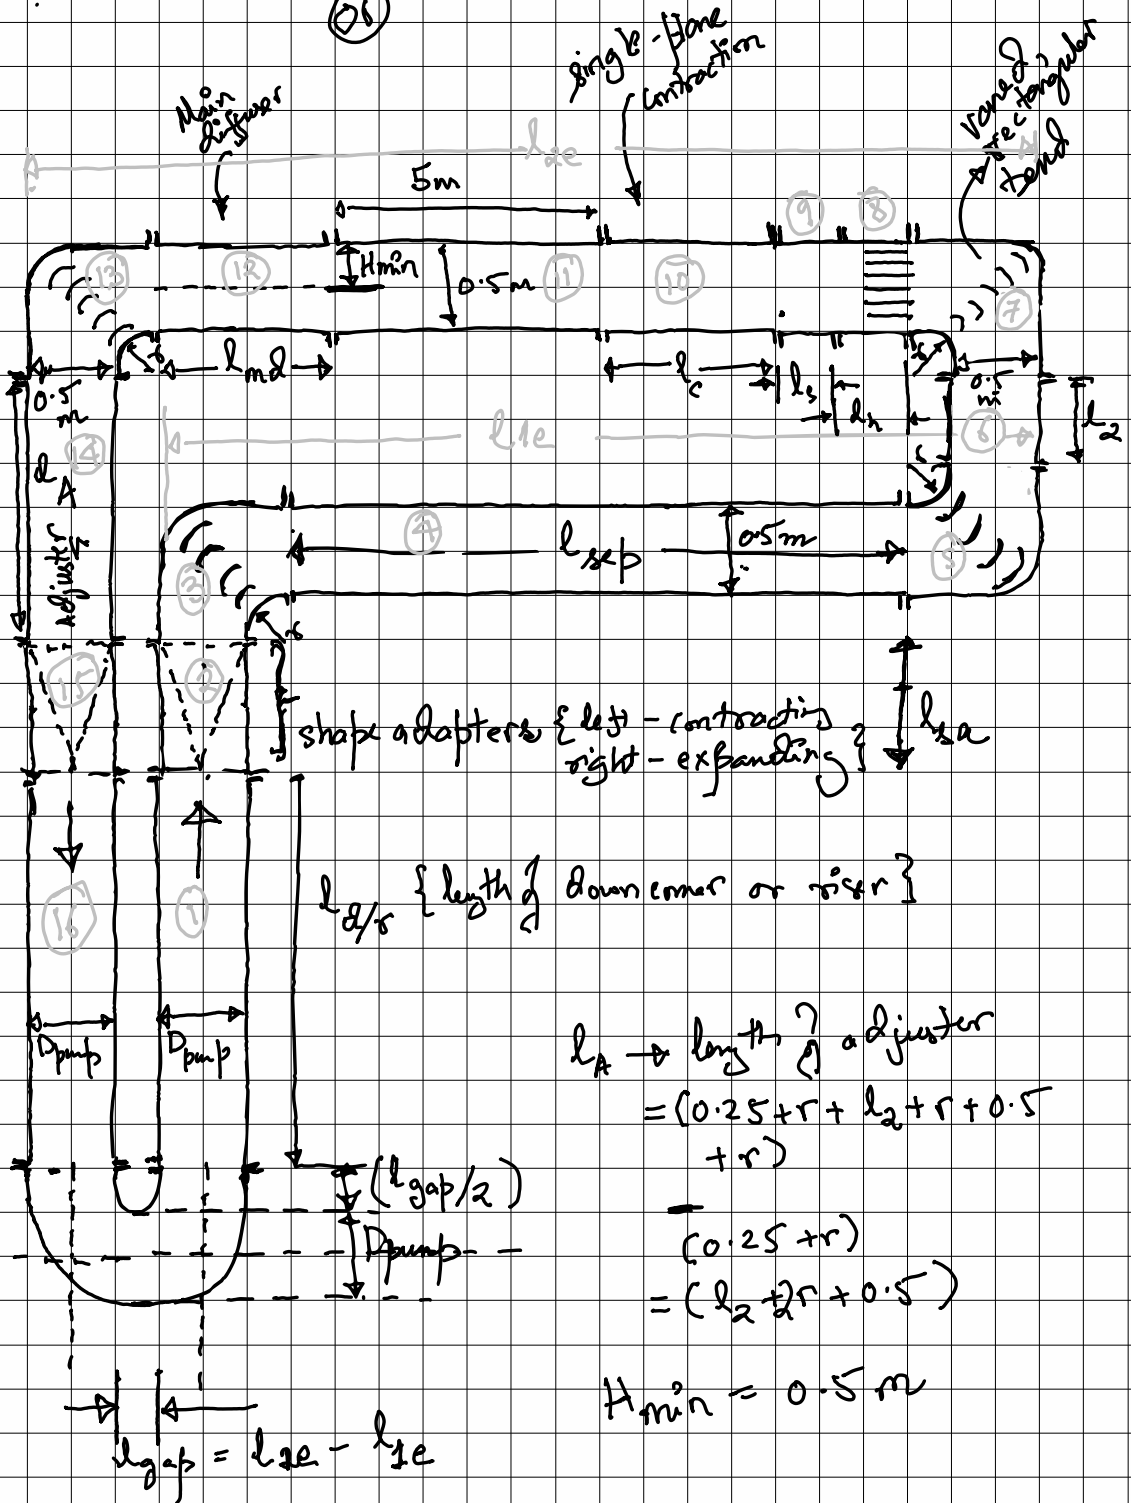 or
single-plane
contraction
vaned
rectangular
bend
Main
diffuser
l2e
5m
9
8
13
12
Hmin
0.5m
11
10
7
r
lmd
lc
ls
lh
r
0.5
m
0.5
m
l2
14
lA
Adjuster
l1e
6
r
3
4
lsep
0.5m
5
r
15
2
shape adapters {left - contracting
right - expanding}
lsa
16
1
ld/r {length of downcomer or riser}
Dpump
Dpump
lA → length of adjuster
= (0.25+r+l2+r+0.5
+r)
-
(0.25+r)
= (l2+2r+0.5)
(lgap/2)
Dpump
Hmin = 0.5m
lgap = l2e - l1e